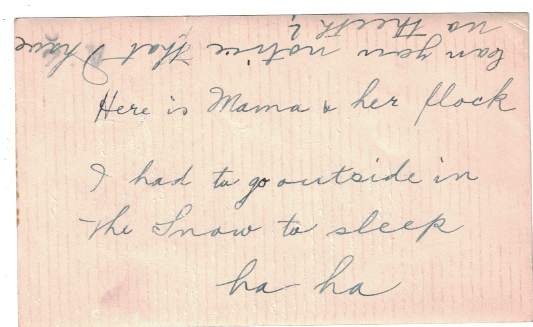 Here is Mama & her flock
I had to go outside in
the Snow to sleep
ha ha
Can you notice that I have
no teeth?